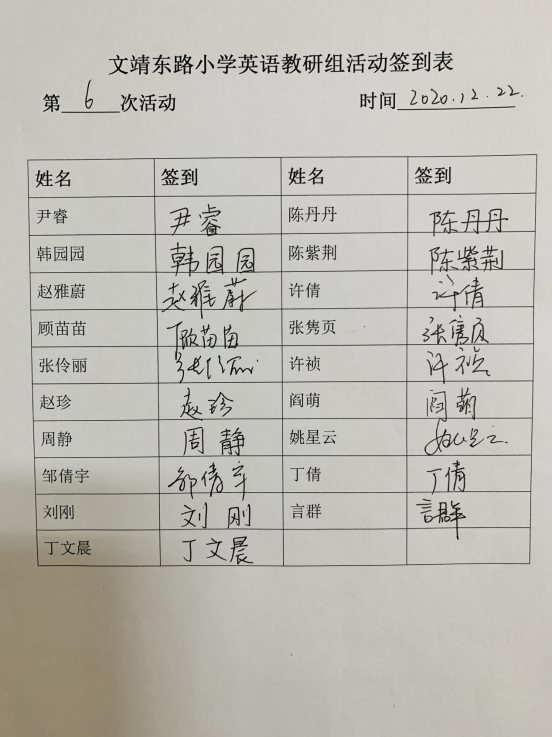 文靖东路小学英语教研组活动签到表
第 6 次活动 时间 2020.12.22.
姓名 签到 姓名 签到
尹睿 尹睿 陈丹丹 陈丹丹
韩园园 韩园园 陈紫荆 陈紫荆
赵雅蔚 赵雅蔚 许倩 许倩
顾苗苗 顾苗苗 张隽页 张隽页
张伶丽 张伶丽 许祯 许祯
赵珍 赵珍 阎萌 阎萌
周静 周静 姚星云 姚星云
邹倩宇 邹倩宇 丁倩 丁倩
刘刚 刘刚 言群 言群
丁文晨 丁文晨